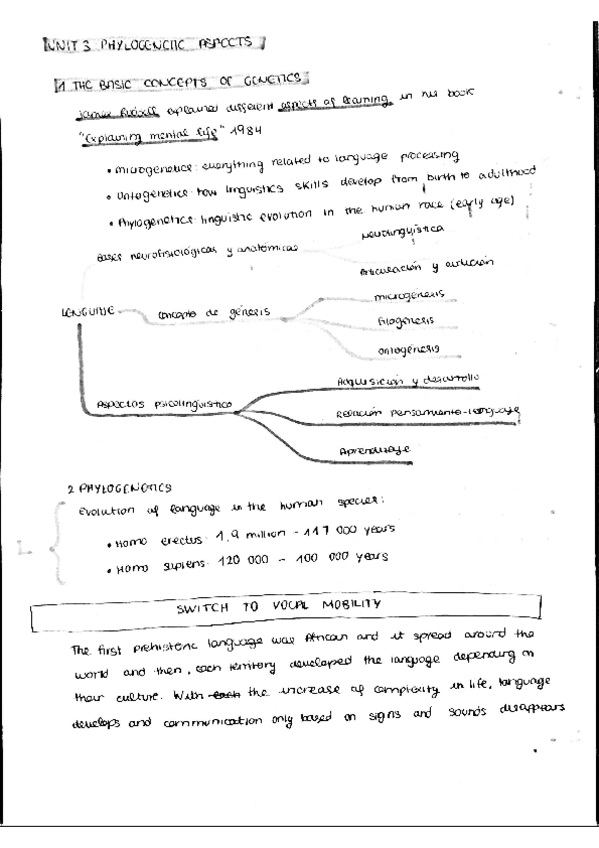 UNIT 3 PHYLOGENETIC ASPECTS
1 THE BASIC CONCEPTS OF GENETICS
James Russell explained different aspects of learning in his book
"Explaining mental life" 1984
• Microgenetics: everything related to language processing
• Ontogenetics: how linguistics skills develop from birth to adulthood
• Phylogenetics: linguistic evolution in the human race (early age)
Bases neurofisiológicas y anatómicas
Neurolinguística
Articulación y audición
LENGUAJE
Concepto de génesis
microgénesis
filogénesis
ontogénesis
Aspectos psicolinguístico
Adquisición y desarrollo
Relación pensamiento-lenguaje
Aprendizaje
2 PHYLOGENETICS
Evolution of language in the human species:
• Homo erectus: 1,9 million - 117 000 years
• Homo sapiens: 120 000 - 100 000 years
SWITCH TO VOCAL MOBILITY
The first prehistoric language was African and it spread around the
world and then, each territory developed the language depending on
their culture. With each the increase of complexity in life, language
develops and communication only based on signs and sounds disappears